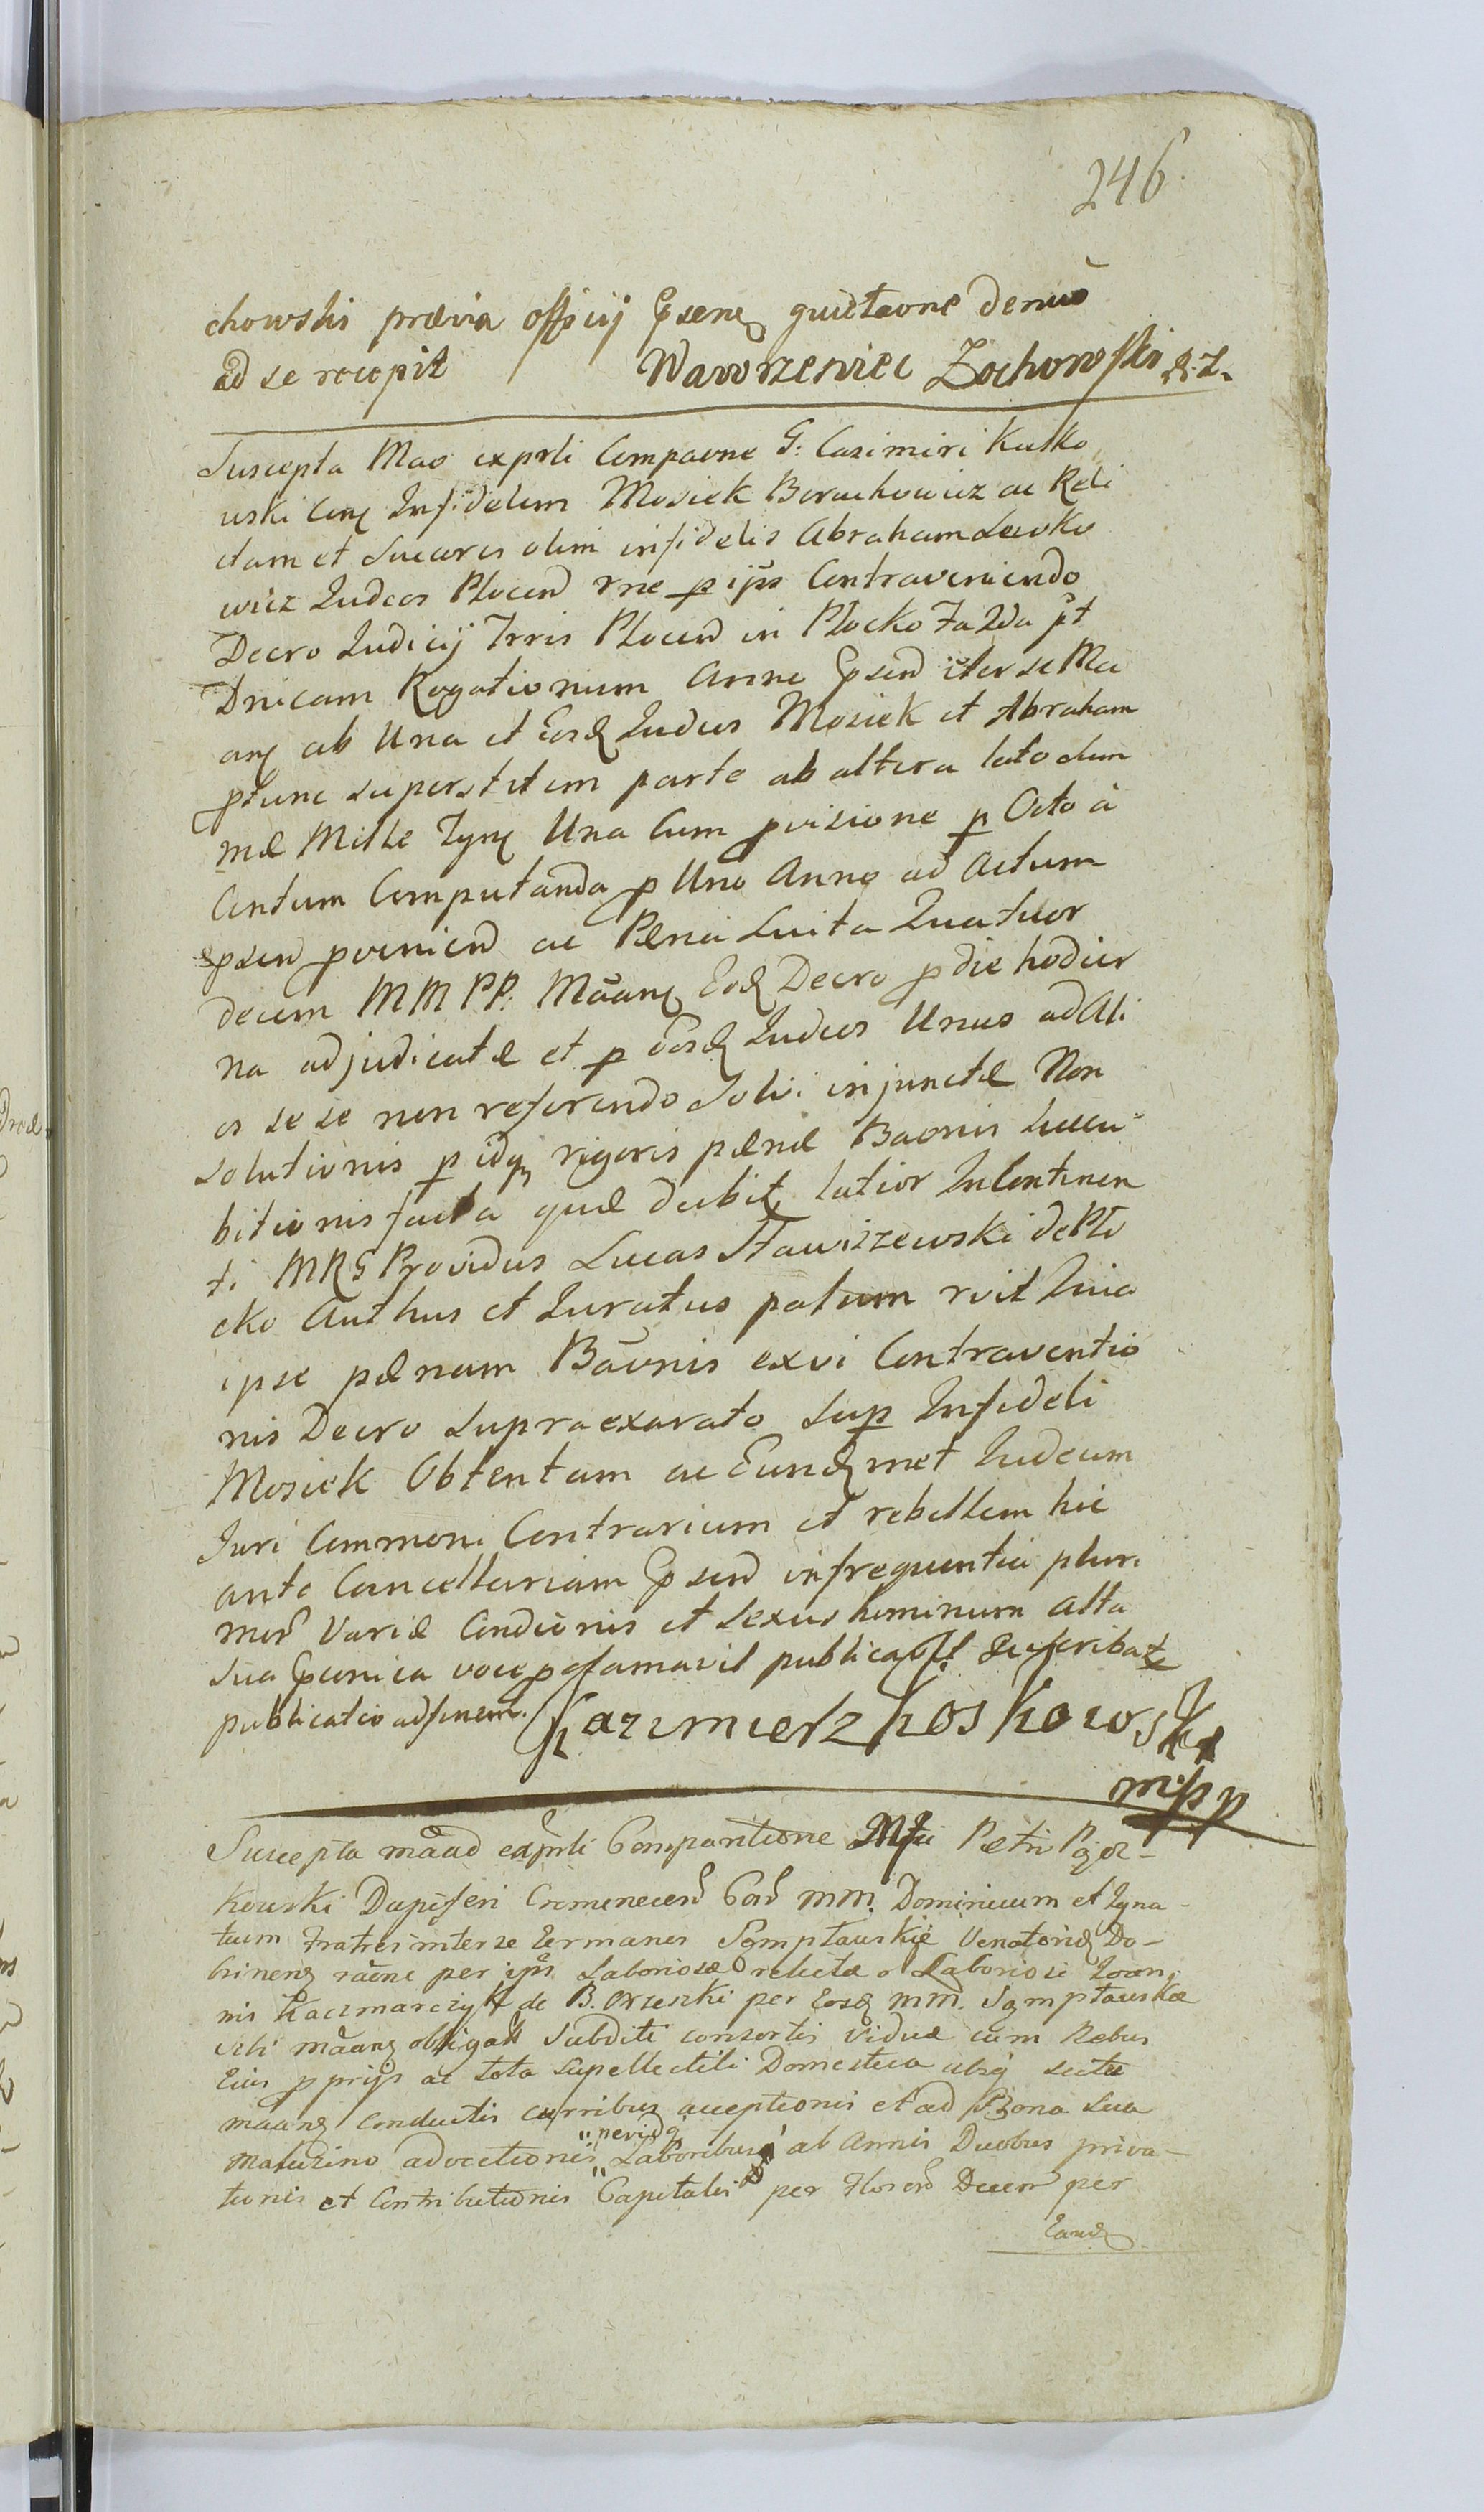 246.
chowski prævia officij Epsene quietaone denuo
ad se recepit Wawrzeniec Zochowski
Suscepta Mao exprti Compaone G: Casimiri Kosko
wski Cong Infidelem Mosiek Borachowicz ac Reli
ctam et Succores olim infidelis Abraham Lewko
wicz Judeos Plocen rne p ijs Contraveniendo
Decro Judicij Trris Plocen in Plocko Fa 2da pt
Dnicam Rogationum Anno Epsen iter se Ma
ang ab Una et Eosd Judeos Mosiek et Abraham
ptunc superstitem parte ab altera lato olum
mæ Mille Tyng Una Cum pvisione p Octo à
Centum Computanda p Uno Anno ad Actum
epsen pvenien ac Pæna Luita Quatuor
decem MMPP. Maang Eod Decro p die hodier
na adjudicatæ et p eosd Judeos Unus ad Ali
os se se non referendo Solvi injunctæ Non
solutionis p idq rigoris pænæ Baonis Succu
bitionis facta quæ dubit latior In Continen
ti MRG Providus Lucas Stawiszewski de Plo
cko Authus et Juratus palum rvit Quia
ipse pænam Baonis ex vi Contraventio
nis Decro supra exarato Sup Infideli
Mosiek Obtentam ac Eund met Judeum
Juri Commoni Contrarium et rebellem hic
ante Cancellariam Epsen in frequentia pluri
mor Variæ Condionis et Sexus hominum alta
sua Epconica voce pclamavit publicavit
publicatio ad finem. Kazimierz Koskowski
mpp
Suscepta maad exprti Comparitione Mfci Petri Pigoz-
kowski Dapiferi Cremenecen Con MM. Dominicum et Igna-
tium Fratres inter se Germanos Sgmptawskie Venatorid Do-
brinens raone per ips Laboriosæ relictæ o Laboriosi Joan
nis Kaczmarczyk de B. Orzeszki per eosd MM. Sgmptawskie
maang obligati Subditi consortis viduæ cum Rebus
Eius pprijs ac tota Supellectili Domestica
maang conductis curribus acceptionis et ad Bona sua
"peridq
Maluzino advectionis "Laboribus ab Annis Duobus priva-
tionis et Contributionis Capitalis per Floren Decem per
Eand